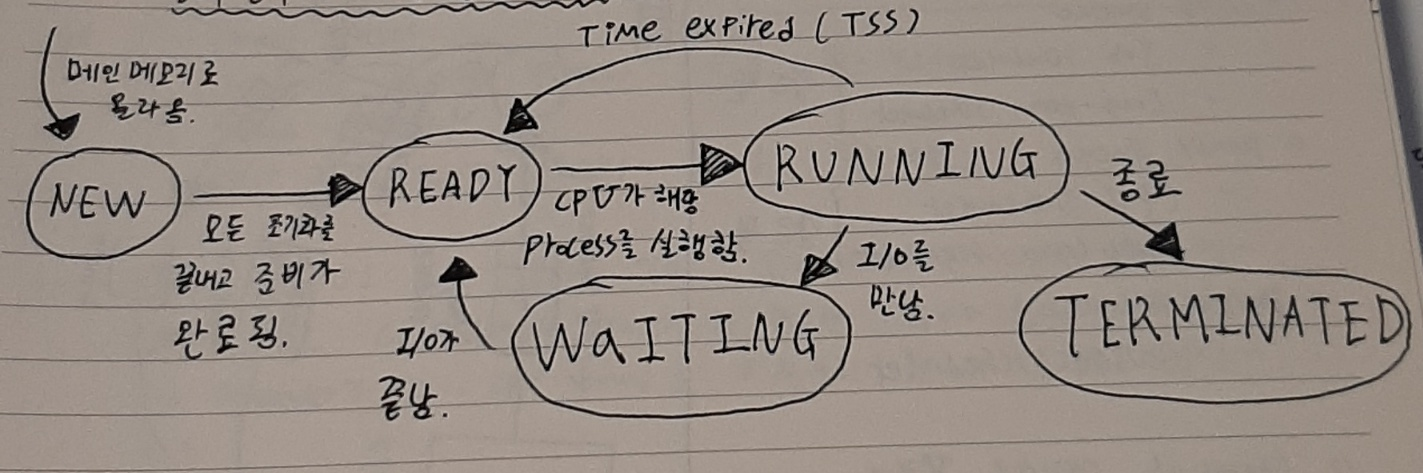 Time expired (TSS)
메인 메모리로
올라옴.
NEW
READY
RUNNING
종료
모든 초기화를
끝내고 준비가
완료됨.
CPU가 해당
Process를 실행함.
I/O를
만남.
I/O가
끝남.
WaITING
TERMINATED